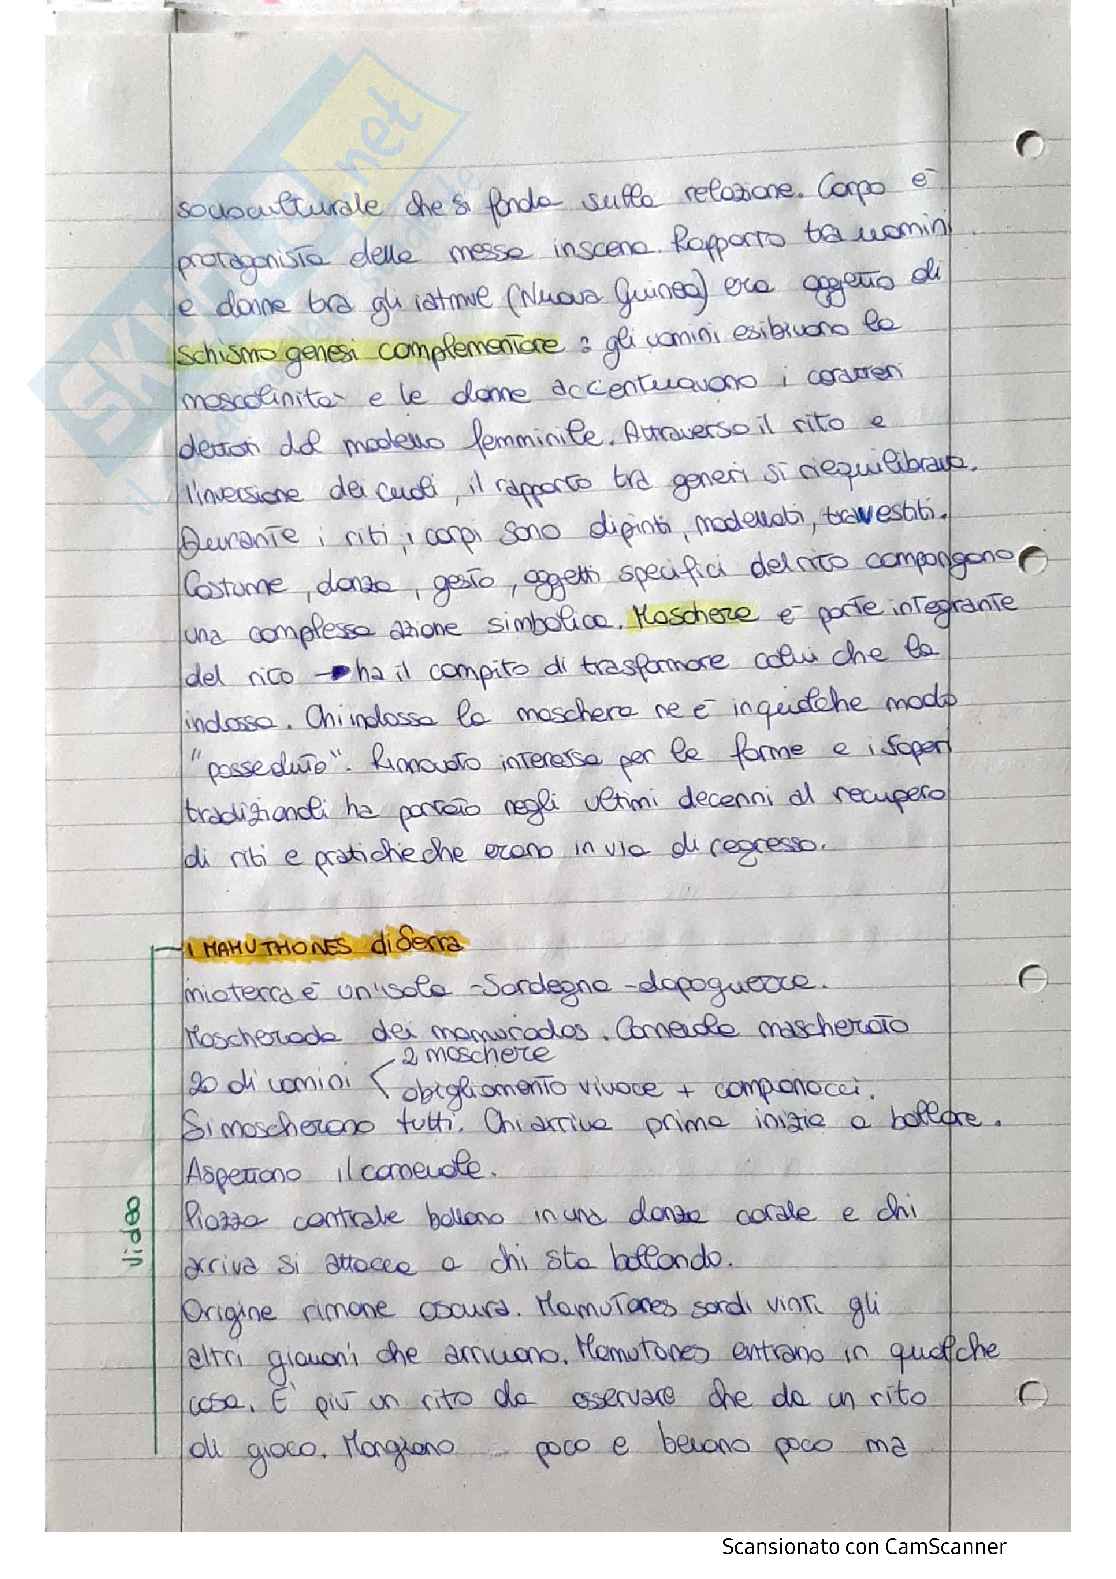 socioculturale che si fonda sulla relazione. Corpo è
protagonista della messa inscena. Rapporto tra uomini
e donne tra gli iatmul (Nuova Guinea) era oggetto di
schismogenesi complementare : gli uomini esibivano la
mascolinità e le donne accentuavano i caratteri
dettati dal modello femminile. Attraverso il rito e
l'inversione dei ruoli, il rapporto tra generi si riequilibrava.
Durante i riti, i corpi sono dipinti, modellati, travestiti.
Costume, danza, gesto, oggetti specifici del rito compongono
una complessa azione simbolica. Maschere è parte integrante
del rito → ha il compito di trasformare colui che la
indossa. Chi indossa la maschera ne è in qualche modo
"posseduto". Rinnovato interesse per le forme e i saperi
tradizionali ha portato negli ultimi decenni al recupero
di riti e pratiche che erano in via di regresso.
I MAMUTHONES di Serra
mia terra è un'isola - Sardegna - dopoguerra.
Mascherada dei mamorados. Carnevale mascherato
2 maschere
20 di uomini
abigliamento vivace + campanacci.
Si mascherano tutti. Chi arriva prima inizia a ballare.
Aspettano il carnevale.
Piazza centrale ballano in una danza corale e chi
arriva si attacca a chi sta ballando.
Origine rimane oscura. Mamutones sardi vinti gli
altri giovani che arrivano. Mamutones entrano in qualche
casa. È più un rito da osservare che da un rito
di gioco. Mangiano poco e bevano poco ma
Video
SKUOLA.net
Scansionato con CamScanner